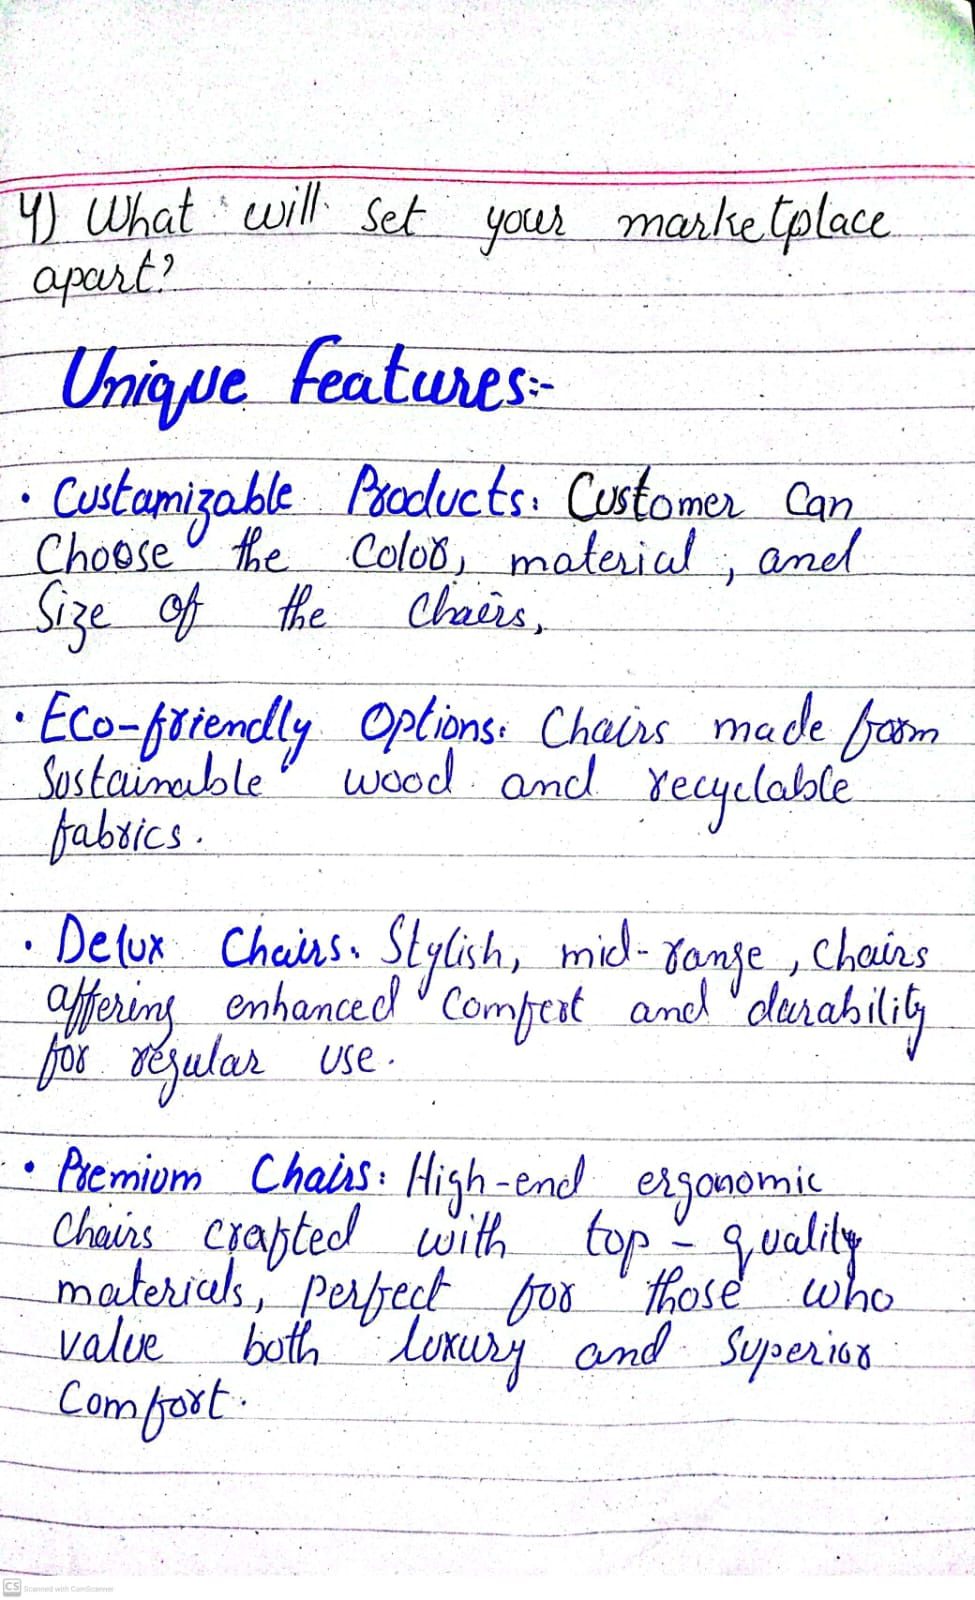 4) What will set your marketplace
apart?
Unique Features:-
• Custamizable Products: Customer Can
Choose the Color, material, and
Size of the Chairs,
• Eco-friendly Options: Chairs made from
Sustainable wood and recyclable
fabrics.
• Delux Chairs: Stylish, mid-range, Chairs
affering enhanced Comfert and durability
for regular use.
• Premium Chairs: High-end ergonomic
Chairs crafted with top-quality
materials, perfect for those who
value both luxury and Superior
Comfort.
CS Scanned with CamScanner